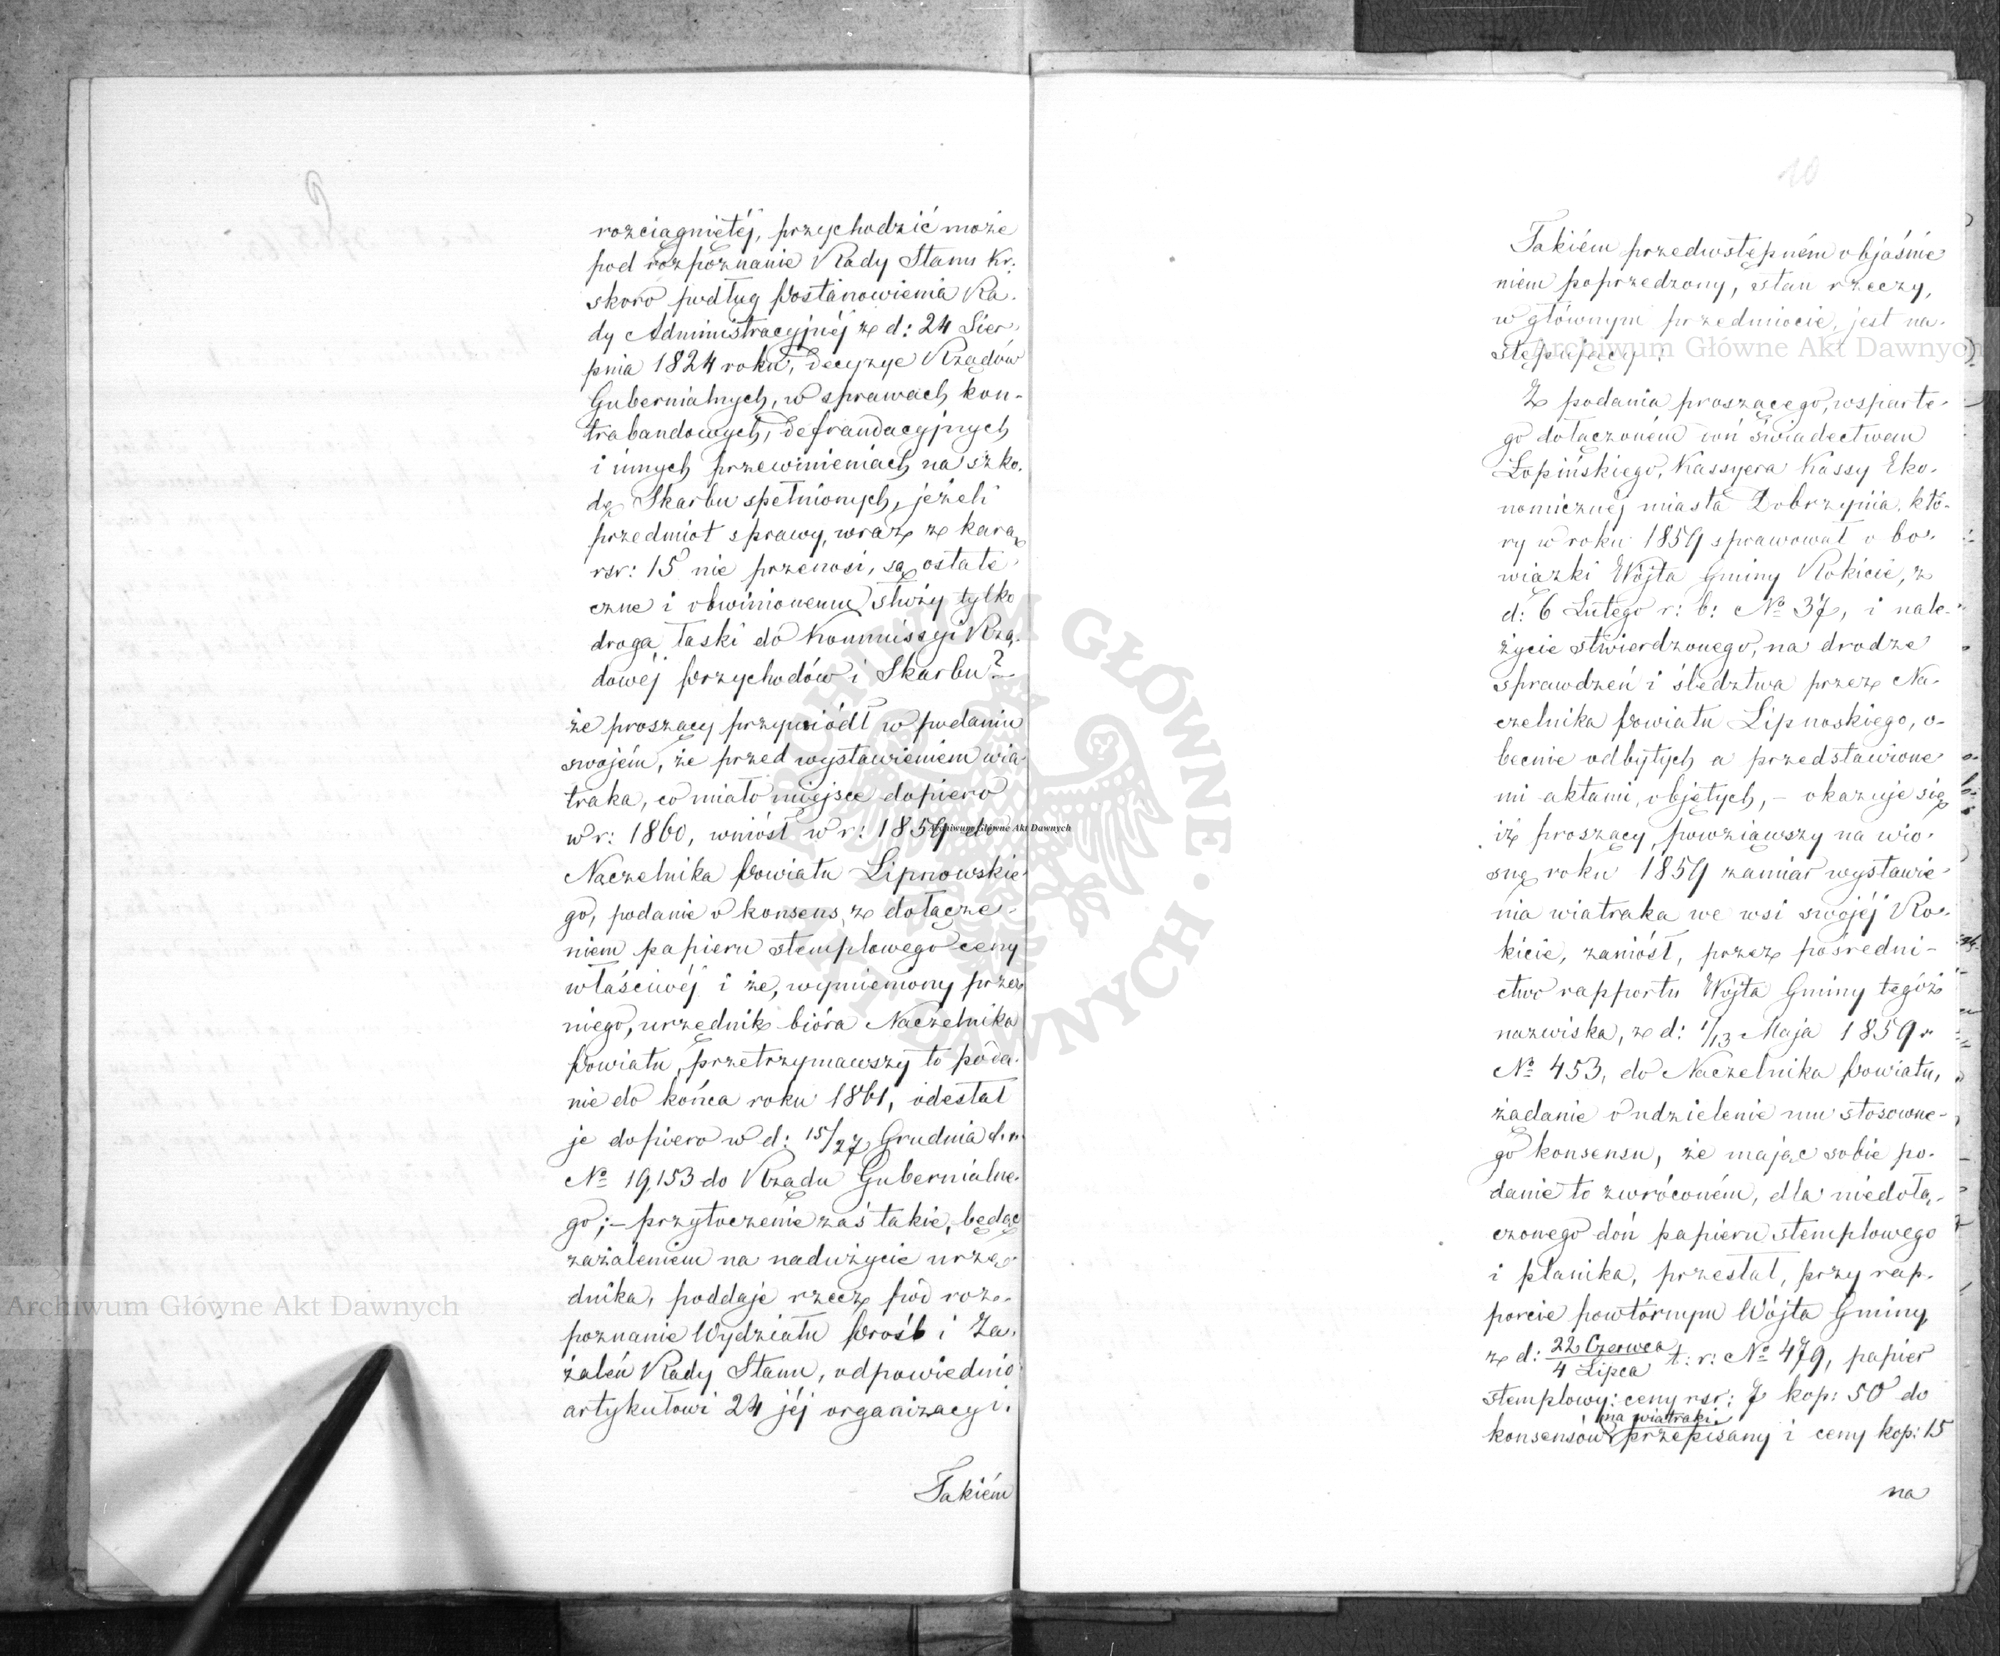 rozciągniętéj, przychodzić może
pod rozpoznanie Rady Stanu Kr:
skoro podług Postanowienia Ra-
dy Administracyjnéj z d: 24 Sier-
pnia 1824 roku, decyzye Rządów
Gubernialnych, w sprawach kon-
trabandowych, defraudacyjnych
i innych przewinieniach na szko-
dę Skarbu spełnionych, jeżeli
przedmiot sprawy, wraz z karą
rsr: 15 nie przenosi, są ostate-
czne i obwinionemu służy tylko
droga łaski do Kommissyi Rzą-
dowéj Przychodów i Skarbu?
że proszący przywiódł w podaniu
swojém, że przed wystawieniem wia-
traka, co miało miejsce dopiero
w r: 1860, wniósł w r: 1859 do
Naczelnika Powiatu Lipnowskie-
go, podanie o konsens, z dołącze-
niem papieru stemplowego ceny
właściwéj i że, wymieniony przez
niego, urzędnik bióra Naczelnika
Powiatu, przetrzymawszy to poda-
nie do końca roku 1861, odesłał
je dopiero w d: 15/27 Grudnia d. r.
№ 19,153 do Rządu Gubernialne-
go; – przytoczenie zaś takie, będąc
zażaleniem na nadużycie urzę-
dnika, poddaje rzecz pod roz-
poznanie Wydziału Prośb i Za-
żaleń Rady Stanu, odpowiednio
artykułowi 24 jéj organizacyi.
Takiém
10
Takiém przedwstępném objaśnie
niem poprzedzony, stan rzeczy,
w głównym przedmiocie, jest na-
stępujący:
Z podania proszącego, wsparte-
go dołączoném doń świadectwem
Łopińskiego, Kassyera Kassy Eko-
nomicznéj miasta Dobrzynia, któ-
ry w roku 1859 sprawował obo-
wiązki Wójta Gminy Rokicie, z
d: 6 Lutego r: b: № 37, i nale-
życie stwierdzonego, na drodze
sprawdzeń i śledztwa przez Na-
czelnika Powiatu Lipnoskiego, o-
becnie odbytych a przedstawione
mi aktami, objętych, – okazuje się
iż proszący, powziąwszy na wio-
snę roku 1859 zamiar wystawie-
nia wiatraka we wsi swojéj Ro-
kicie, zaniósł, przez pośredni-
ctwo rapportu Wójta Gminy tegóż
nazwiska, z d: 1/13 Maja 1859 r.
№ 453, do Naczelnika Powiatu,
żądanie o udzielenie mu stosowne-
go konsensu, że mając sobie po-
danie to zwróconém, dla niedołą-
czonego doń papieru stemplowego
i planika, przesłał, przy rap-
porcie powtórnym Wójta Gminy
z d: 22 Czerwca/4 Lipca t: r: № 479, papier
stemplowy: ceny rsr: 7 kop: 50 do
na wiatraki
konsensów przepisany i ceny kop: 15
na
Archiwum Główne Akt Dawnych
Archiwum Główne Akt Dawnych
Archiwum Główne Akt Dawnych
ARCHIWUM GŁÓWNE AKT DAWNYCH